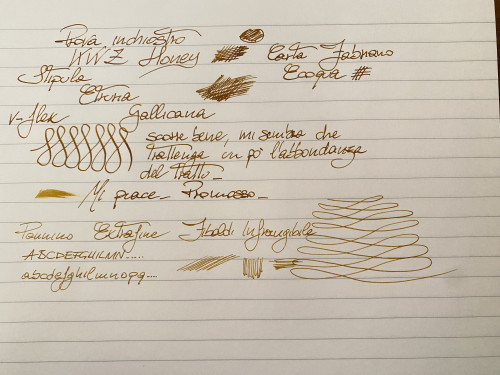 Prova inchiostro
KWZ Honey Carta Fabriano
Stipula Ecoqua #
Etruria
V-flex Gallicana
scorre bene, mi sembra che
trattenga un pò l'abbondanza
del tratto_
Mi piace_ Promosso_
Pennino Extrafine Tibaldi Infrangibile
ABCDEFGHILMN.....
abcdefghilmnopq....